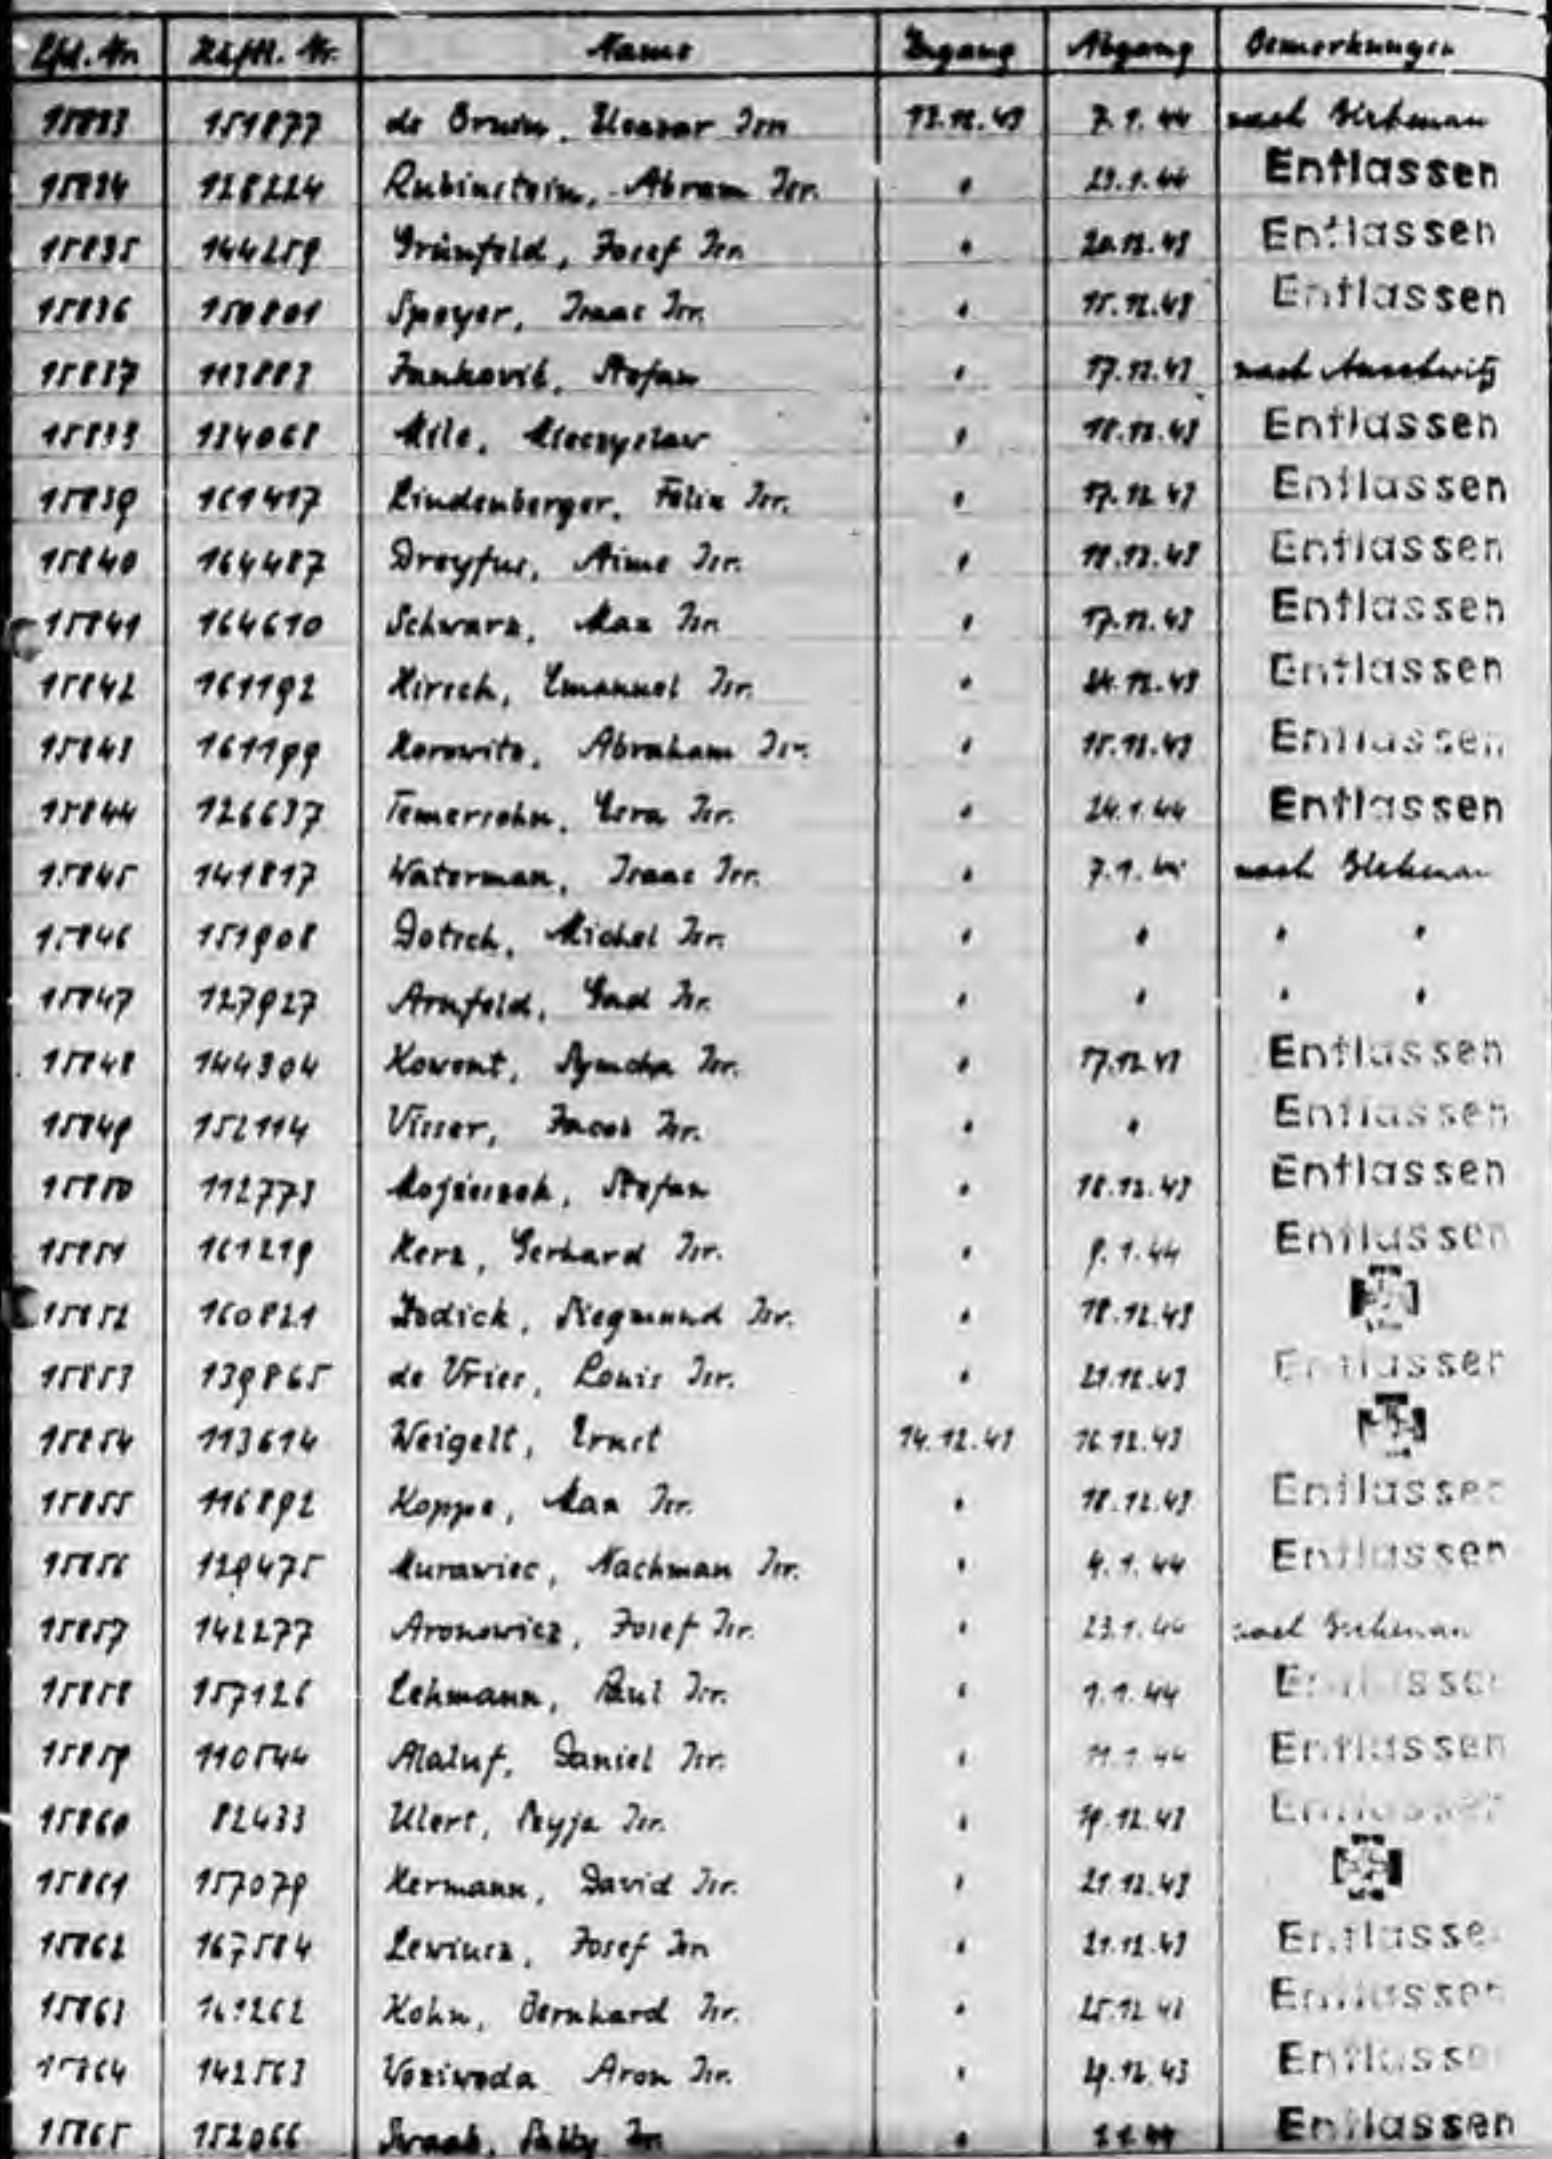 Lfd. Nr. Häftl. Nr. Name Zugang Abgang Bemerkungen
15833 151877 de Bruin, Eleasar Isr. 13.12.43 7.1.44 nach Birkenau
15834 128224 Rubinstein, Abram Isr. " 29.1.44 Entlassen
15835 144259 Grünfeld, Josef Isr. " 20.12.43 Entlassen
15836 150801 Speyer, Isaac Isr. " 15.12.43 Entlassen
15837 113883 Stefan " 17.12.43 nach Auschwitz
15838 134068 Mieczyslaw " 18.12.43 Entlassen
15839 161417 Lindenberger, Felix Isr. " 17.12.43 Entlassen
15840 164487 Dreyfus, Aime Isr. " 18.12.43 Entlassen
15841 164610 Schwarz, Max Isr. " 17.12.43 Entlassen
15842 161192 Hirsch, Emanuel Isr. " 24.12.43 Entlassen
15843 161199 Horowitz, Abraham Isr. " 15.12.43 Entlassen
15844 126637 Temersohn, Esra Isr. " 24.1.44 Entlassen
15845 141817 Waterman, Isaac Isr. " 7.1.44 nach Birkenau
15846 151908 Dotsch, Michel Isr. " " " "
15847 127927 Arnfeld, Gad Isr. " " " "
15848 144304 Kowent, Symcha Isr. " 17.12.43 Entlassen
15849 152114 Visser, Jacob Isr. " " Entlassen
15850 112773 Stefan " 18.12.43 Entlassen
15851 161219 Herz, Gerhard Isr. " 9.1.44 Entlassen
15852 160821 Jodick, Siegmund Isr. " 18.12.43
15853 139865 de Vries, Louis Isr. " 21.12.43 Entlassen
15854 113614 Weigelt, Ernst 14.12.43 16.12.43
15855 116892 Koppe, Max Isr. " 18.12.43 Entlassen
15856 129475 Murawiec, Nachman Isr. " 4.1.44 Entlassen
15857 142277 Aronowicz, Josef Isr. " 23.1.44 nach Birkenau
15858 157126 Lehmann, Paul Isr. " 1.1.44 Entlassen
15859 110544 Alaluf, Daniel Isr. " 11.1.44 Entlassen
15860 82433 Ulert, Isr. " 19.12.43 Entlassen
15861 157079 Hermann, David Isr. " 21.12.43
15862 167584 Lewinsz, Josef Isr. " 21.12.43 Entlassen
15863 161262 Kohn, Bernhard Isr. " 25.12.43 Entlassen
15864 142563 Woziwoda Aron Isr. " 29.12.43 Entlassen
15865 152066 Isr. " Entlassen